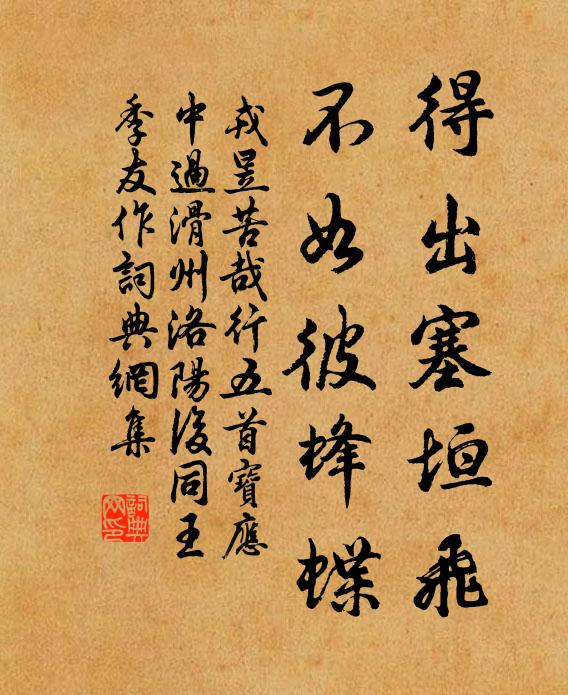 得出塞垣飛
不如彼蜂蝶
戎昱苦哉行五首寶應
中過滑州洛陽後同王
季友作詞典網集
詞典
網印